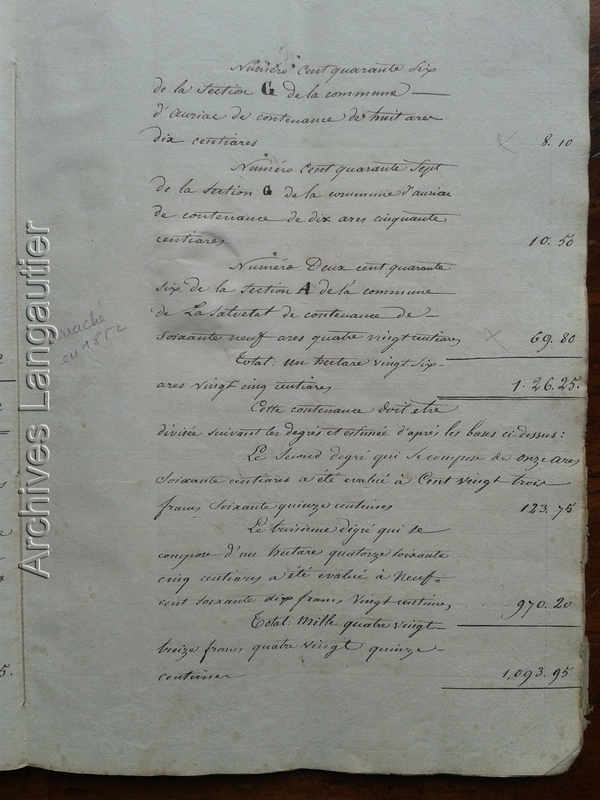 Numéro Cent quarante six
de la section G de la commune
d'auriac de contenance de huit ares
dix centiares 8. 10
Numéro Cent quarante Sept
de la section G de la commune d'auriac
de contenance de dix ares cinquante
centiares 10. 50
Numéro Deux cent quarante
six de la section A de la commune
de La Salvetat de contenance de
Soixante neuf ares quatre vingt centiares 69. 80
Total: un hectare vingt six
ares vingt cinq centiares 1. 26. 25.
Cette contenance doit etre
divisée suivant les degrés et estimée d'après les bases ci dessus:
Le Second degré qui se compose de onze ares
Soixante centiares a été evalué à Cent vingt trois
francs Soixante quinze centimes 123. 75
Le troisieme degré qui se
compose d'un hectare quatorze soixante
cinq centiares a été evalué à Neuf
cent soixante dix francs Vingt centimes 970. 20
Total mille quatre vingt
treize francs quatre vingt quinze
centimes 1,093. 95
arraché
en 1852
Archives Langautier
5.